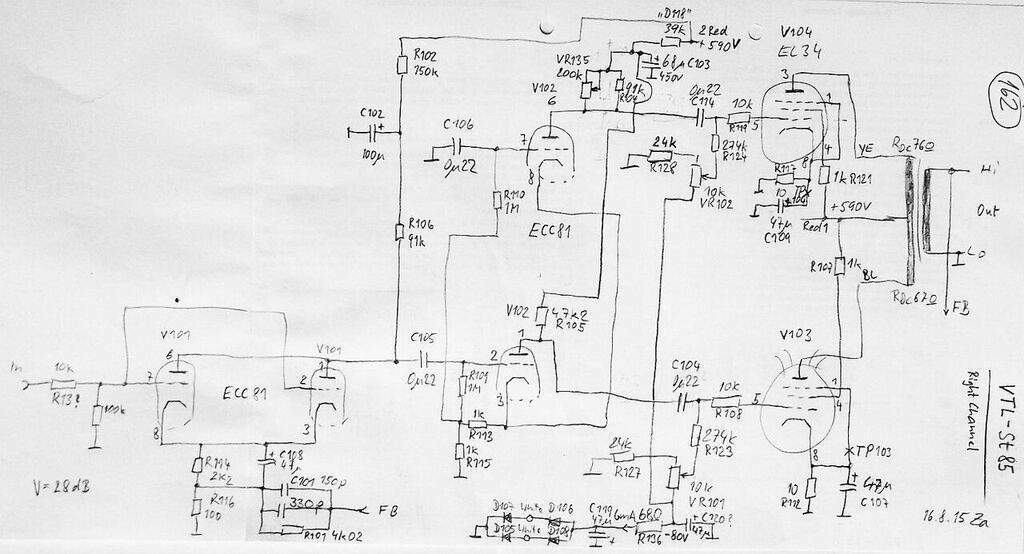 "D118"
39k
2 Red
+590V
V104
EL34
162
R102
150k
VR135
200k
68µ C103
450V
V102
6
91k
R104
0µ22
C114
10k
R119
5
3
1
4
8
YE
RDC76Ω
Hi
Out
Lo
FB
C102
100µ
C106
0µ22
7
8
ECC81
24k
R128
274k
R124
10k
VR102
R117
10
47µ
C109
1k R121
+590V
Red1
R110
1M
R106
91k
R107
1k
BL
RDC67Ω
V101
V101
V102
4,7k2
R105
V103
In
10k
R13?
7
6
ECC81
1
2
3
8
100k
C105
0µ22
2
1
3
R109
1M
1k
R113
1k
R115
C104
0µ22
10k
R108
5
1
4
8
TP103
274k
R123
24k
R127
10k
VR101
10
R112
47µ
C107
VTL-St85
Right Channel
R114
2k2
C108
47
R116
100
C101 150p
330p
FB
R101 4k02
V=28dB
D107 White D106
D105 White D108
C119
47µ
6mA
68Ω
R136
-80V
+C120?
47µ
16.8.15 Za